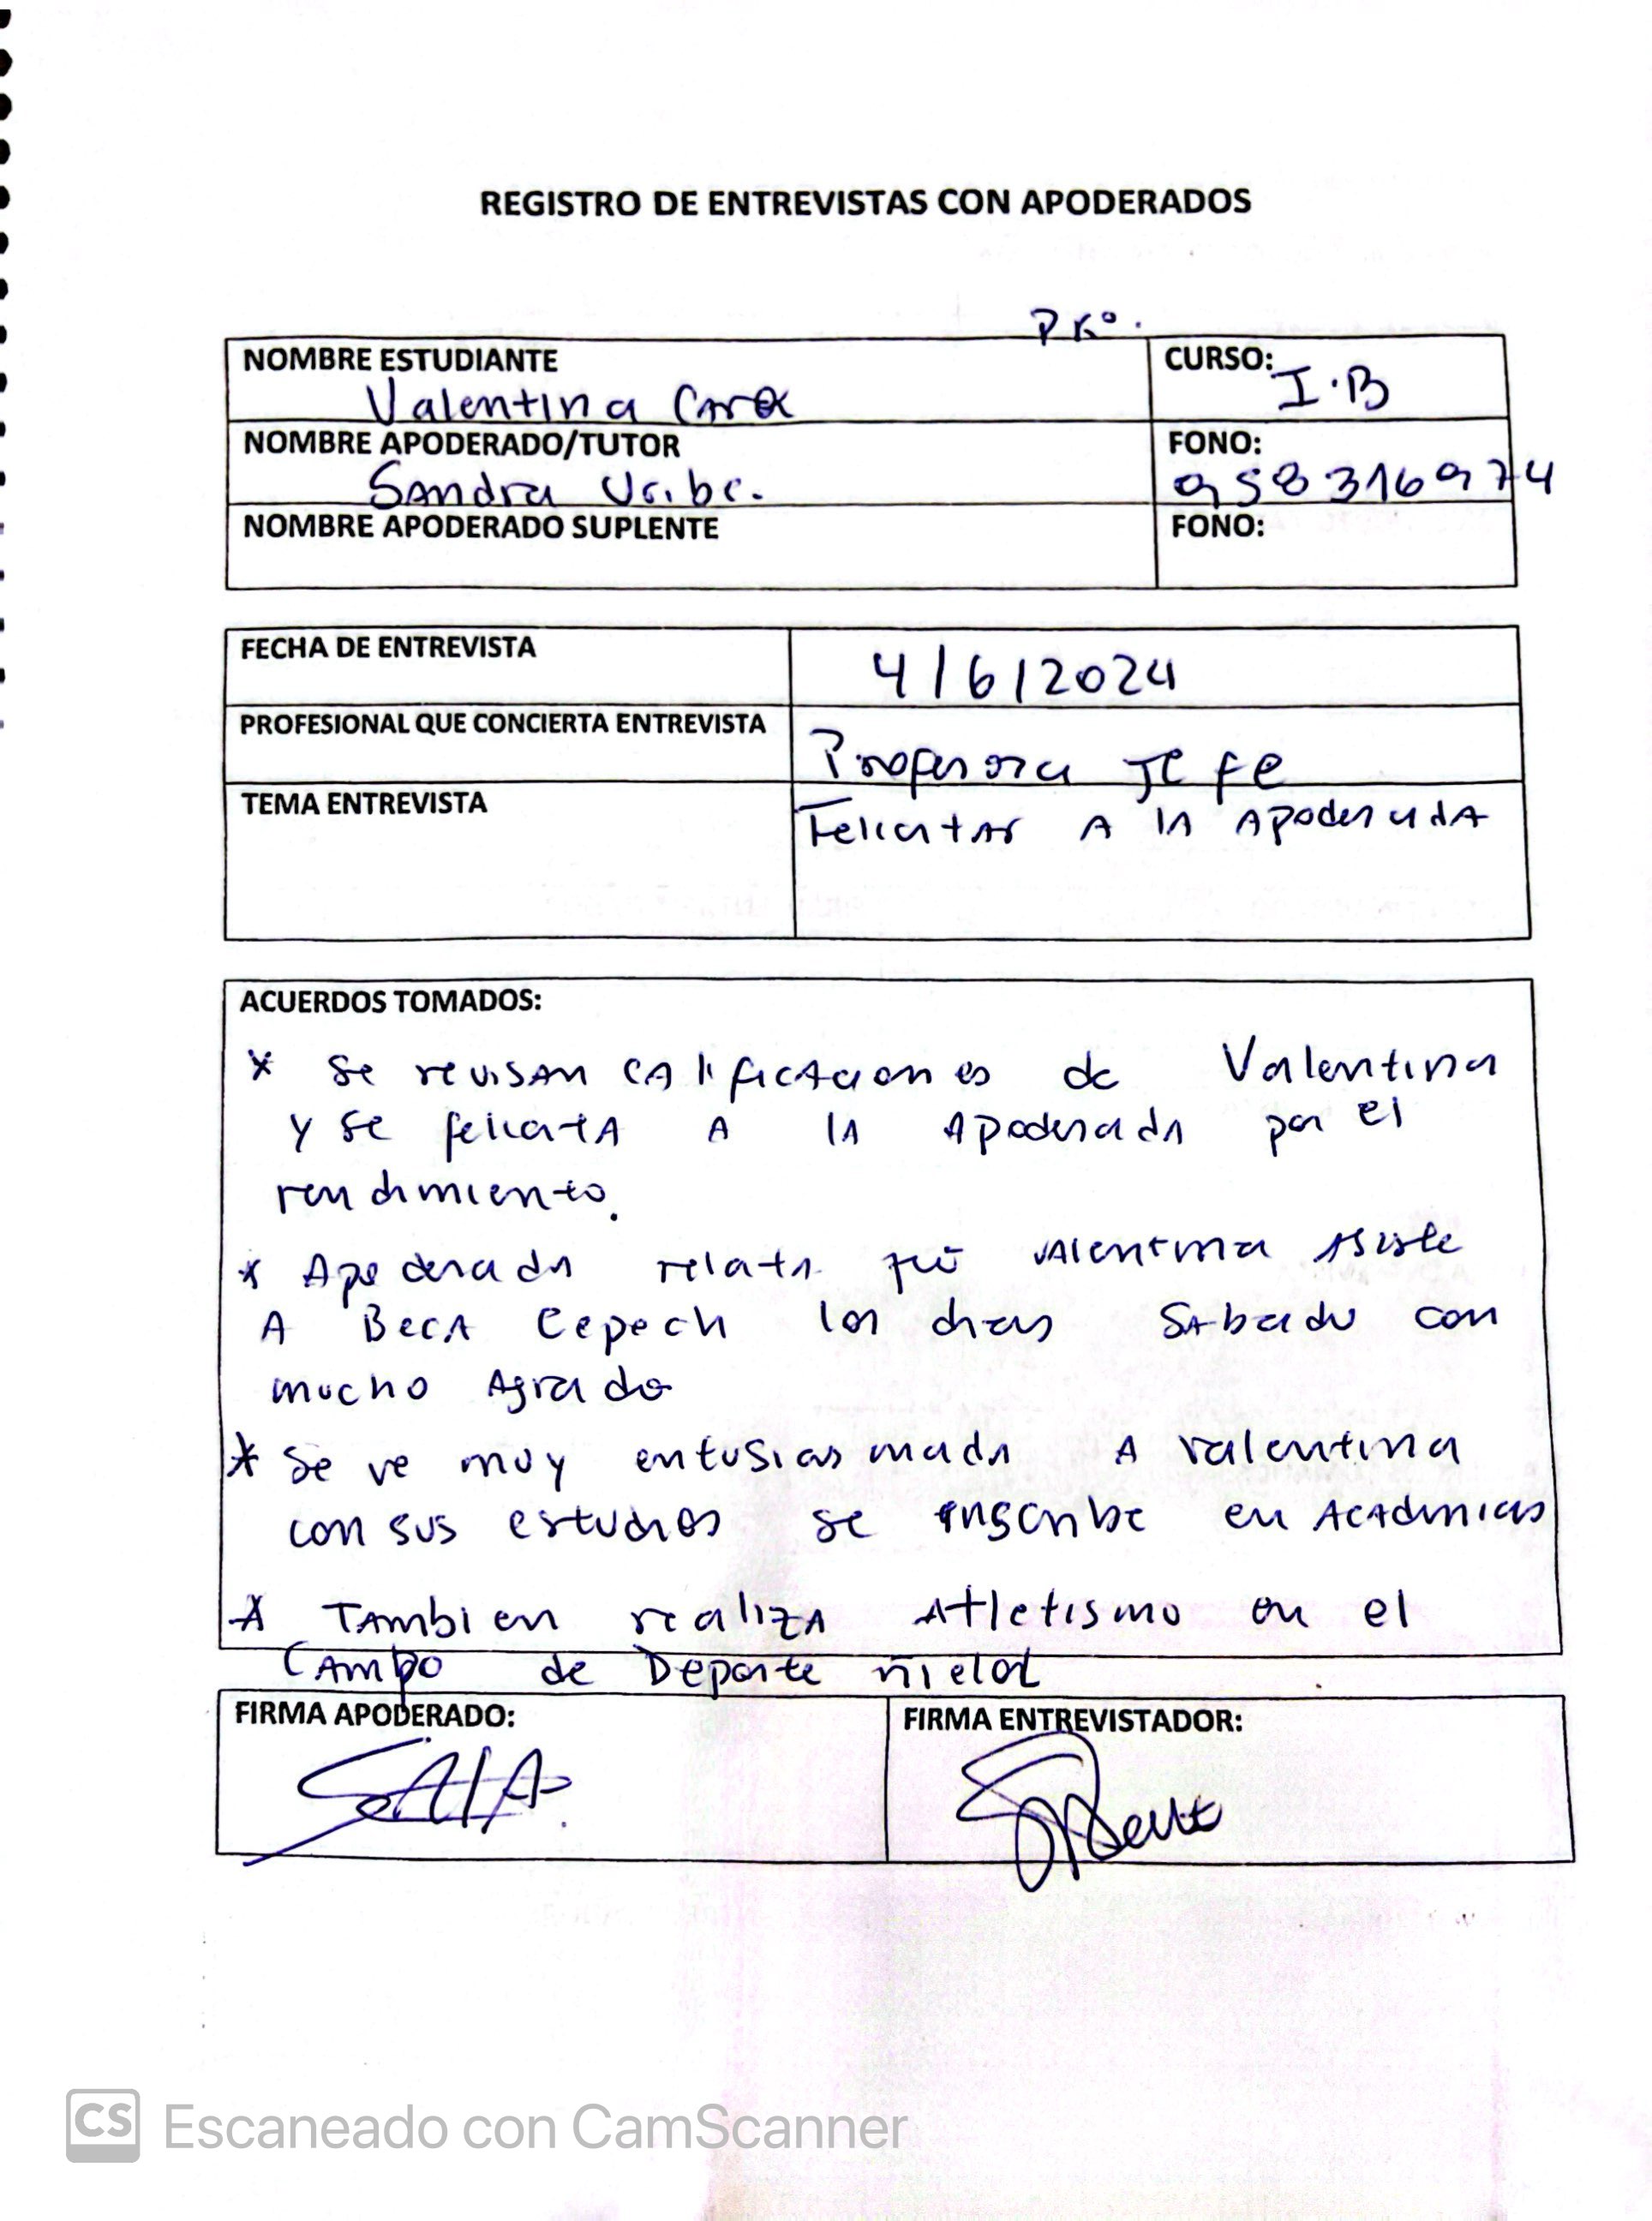 REGISTRO DE ENTREVISTAS CON APODERADOS
NOMBRE ESTUDIANTE
Valentina
CURSO:
I.B
NOMBRE APODERADO/TUTOR
Sandra Uribe.
FONO:
958316974
NOMBRE APODERADO SUPLENTE
FONO:
FECHA DE ENTREVISTA
4/6/2024
PROFESIONAL QUE CONCIERTA ENTREVISTA
Profesora Jefe
TEMA ENTREVISTA
Felicitar A la Apoderada
ACUERDOS TOMADOS:
* Se revisan calificaciones de Valentina
y se felicita A la Apoderada por el
rendimiento.
* Apoderada relata que Valentina Asiste
A Beca Cepech los dias Sabado con
mucho Agrado
* Se ve muy entusiasmada A Valentina
con sus estudios se inscribe en Academias
* Tambien realiza Atletismo en el
Campo de Deporte Ñielol
FIRMA APODERADO:
FIRMA ENTREVISTADOR:
CS Escaneado con CamScanner